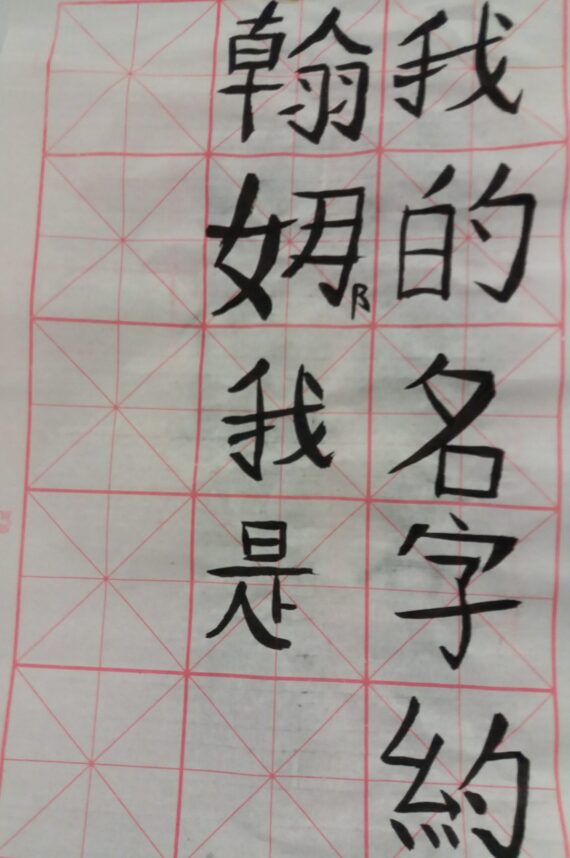 我的名字約
翰姆我是